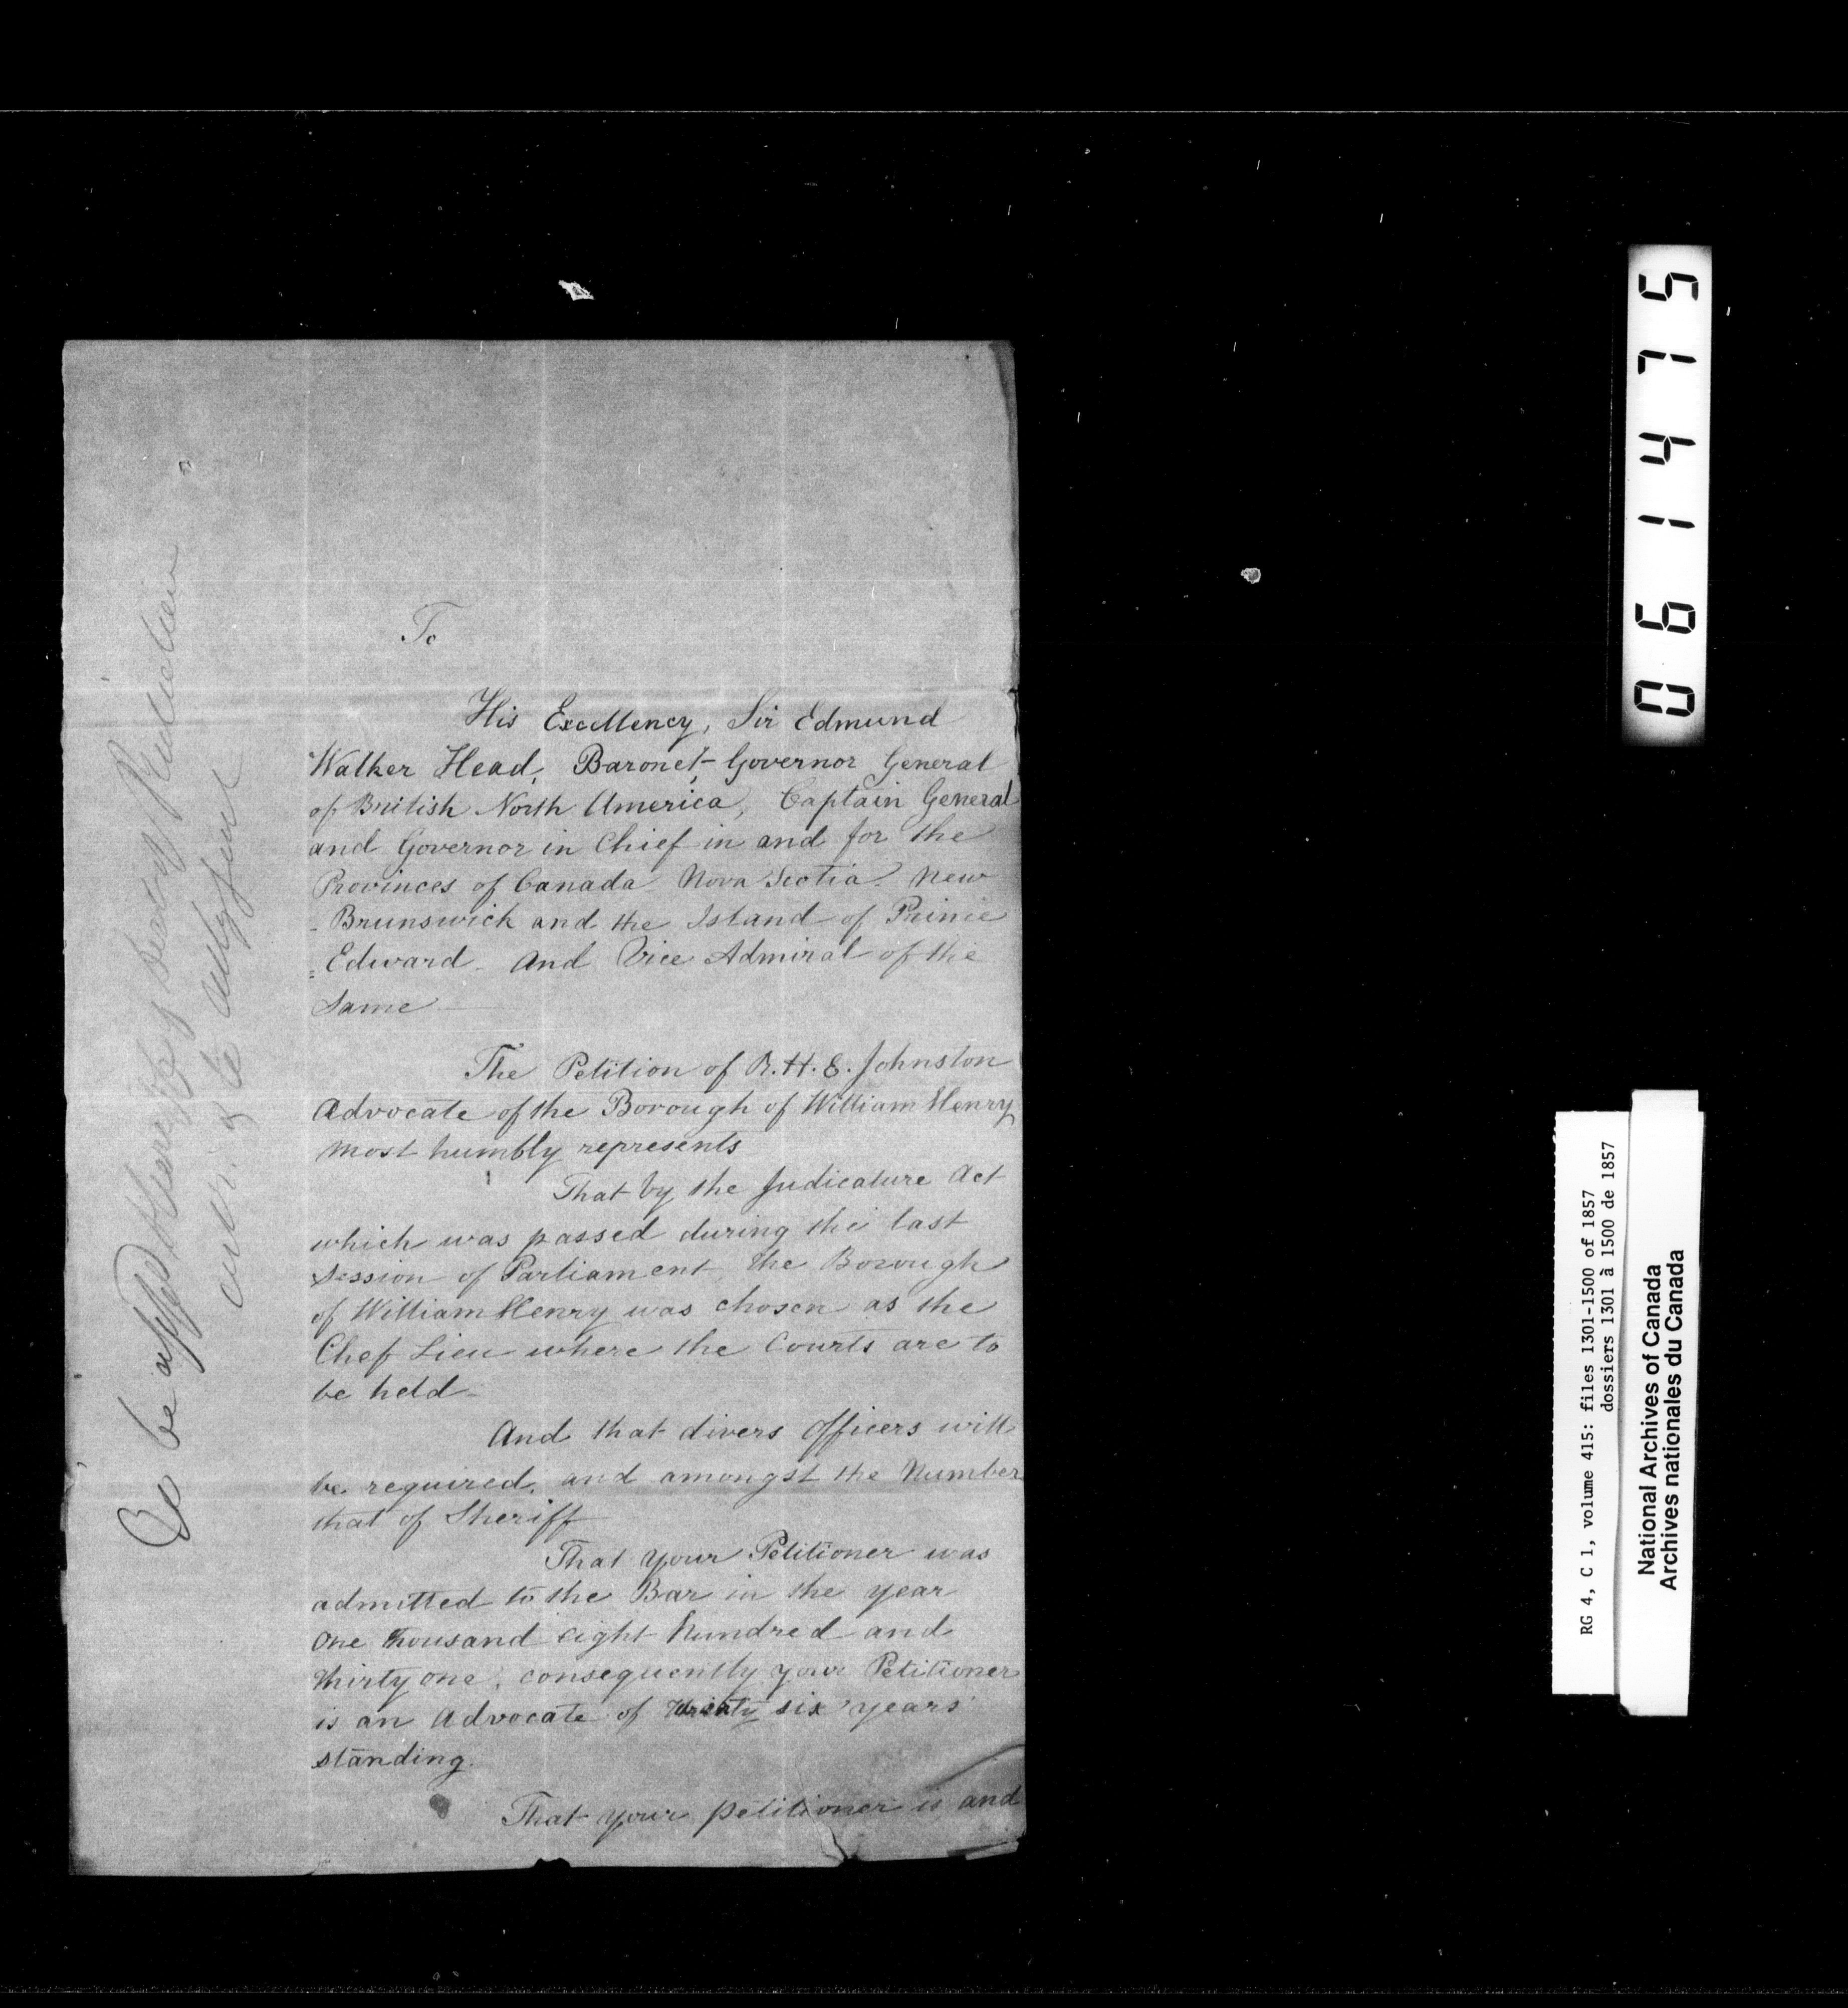 To
His Excellency, Sir Edmund
Walker Head, Baronet, Governor General
of British North America, Captain General
and Governor in Chief in and for the
Provinces of Canada Nova Scotia New
- Brunswick and the Island of Prince
= Edward and Vice Admiral of the
Same
The Petition of R. H. E. Johnston
Advocate of the Borough of William Henry
most humbly represents
That by the Judicature Act
which was passed during the last
Session of Parliament, the Borough
of William Henry was chosen as the
Chef Lieu where the Courts are to
be held -
And that divers Officers will
be required, and amongst the Number
that of Sheriff
That your Petitioner was
admitted to the Bar in the year
One thousand eight hundred and
thirty one, consequently your Petitioner
is an Advocate of twenty six years
standing.
That your petitioner is and
be
061475
RG 4, C 1, volume 415: files 1301-1500 of 1857
dossiers 1301 à 1500 de 1857
National Archives of Canada
Archives nationales du Canada